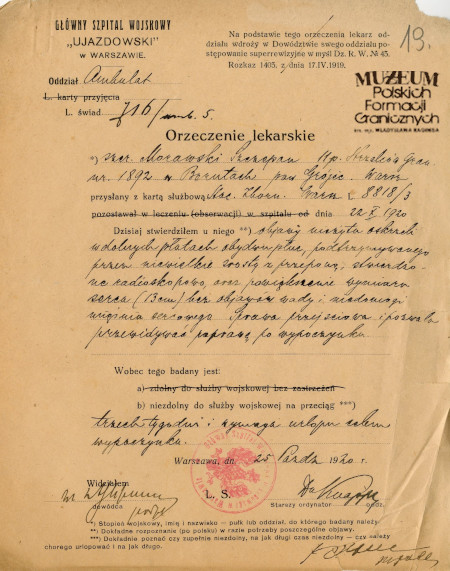 GŁÓWNY SZPITAL WOJSKOWY
"UJAZDOWSKI"
w WARSZAWIE.
Na podstawie tego orzeczenia lekarz od-
działu wdroży w Dowództwie swego oddziału po-
stępowanie superrewizyjne w myśl Dz. R. W. № 45.
Rozkaz 1405. z dnia 17.IV.1919.
19.
Oddział Ambulat
L. karty przyjęcia
L. świad 716/amb. 5.
MUZEUM
Polskich
Formacji
Granicznych
im. mjr. WŁADYSŁAWA RAGINISA
Orzeczenie lekarskie
*) szer. Morawski Szczepan 11 p. Strzelców Gran.
ur. 1892 w pow Grójec. Warsz
przysłany z kartą służbową Warsz 8818/3
pozostawał w leczeniu (obserwacji) w szpitalu od dnia 22 X 1920
Dzisiaj stwierdziłem u niego **) objawy nieżytu oskrzeli
w dolnych płatach obydwu płuc, podtrzymywanego
przez niewielkie zrosty z przeponą, stwierdzo-
ne radioskopowo, oraz powiększenie wymiaru
serca (13cm) bez objawów wady i niedomogi
mięśnia sercowego. Sprawa przejściowa i pozwala
przewidywać poprawę po wypoczynku.
Wobec tego badany jest:
a) zdolny do służby wojskowej bez zastrzeżeń
b) niezdolny do służby wojskowej na przeciąg ***)
trzech tygodni i wymaga urlopu celem
wypoczynku.
Warszawa, dn. 25 Paźdz 1920 r.
Widziałem
L. S.
Dr
Starszy ordynator
*) Stopień wojskowy, imię i nazwisko — pułk lub oddział, do którego badany należy.
**) Dokładne rozpoznanie (po polsku) w razie potrzeby poszczególne objawy.
***) Dokładnie poznać czy zupełnie niezdolny, na jak długi czas niezdolny — czy należy
chorego urlopować i na jak długo.